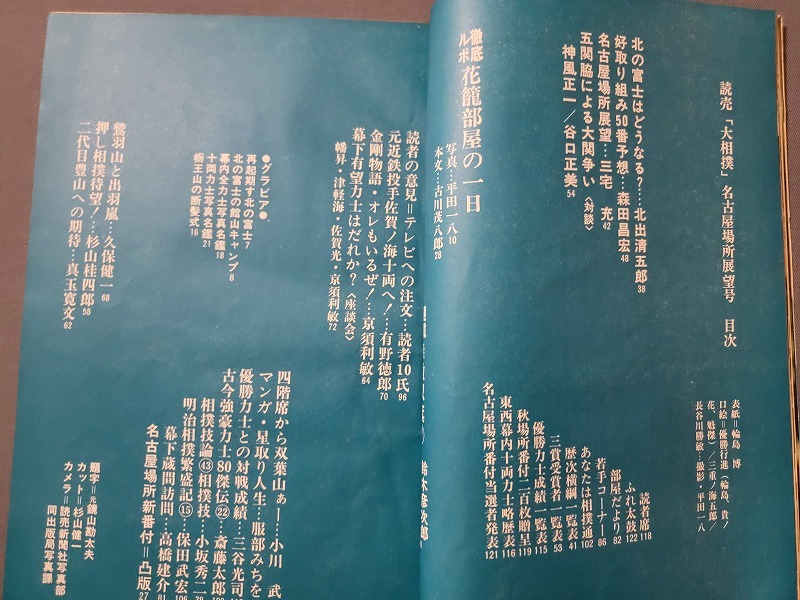 読売「大相撲」名古屋場所展望号 目次
表紙＝輪島 博
口絵＝優勝行進（輪島、貴ノ
花、魁傑）／三重ノ海五郎／
長谷川勝敏・撮影・平田一八
北の富士はどうなる？…北出清五郎38
好取り組み50番予想…森田昌宏48
名古屋場所展望…三宅 充42
五関脇による大関争い〈対談〉
神風正一／谷口正美54
徹底ルポ 花籠部屋の一日
写真…平田一八10
本文…古川茂八郎28
読者席118
ふれ太鼓122
部屋だより82
若手コーナー86
あなたは相撲通102
歴次横綱一覧表41
三賞受賞者一覧表53
優勝力士成績一覧表115
秋場所番付二百枚贈呈119
東西幕内十両力士略歴表116
名古屋場所番付当選者発表121
鈴木彦次郎
読者の意見＝テレビへの注文…読者10氏96
元近鉄投手佐賀ノ海十両へ！…有野徳郎70
金剛物語・オレもいるぜ！…京須利敏64
幕下有望力士はだれか？〈座談会〉
幡昇・津軽海・佐賀光・京須利敏72
●グラビア●
再起期す北の富士7
北の富士の館山キャンプ8
幕内全力士写真名鑑18
十両力士写真名鑑21
栃王山の断髪式16
鷲羽山と出羽嵐…久保健一68
押し相撲待望！…杉山桂四郎58
二代目豊山への期待…真玉寛文62
四階席から双葉山ぁー…小川 武
マンガ・星取り人生…服部みちを
優勝力士との対戦成績…三谷光司
古今強豪力士80傑伝㉒…斎藤太郎
相撲技論㊸相撲技…小坂秀二
明治相撲繁盛記⑮…保田武宏106
幕下蔵間訪問…高橋建介81
名古屋場所新番付＝凸版27
題字＝元鏡山勘太夫
カット＝杉山健一
カメラ＝読売新聞社写真部
同出版局写真課